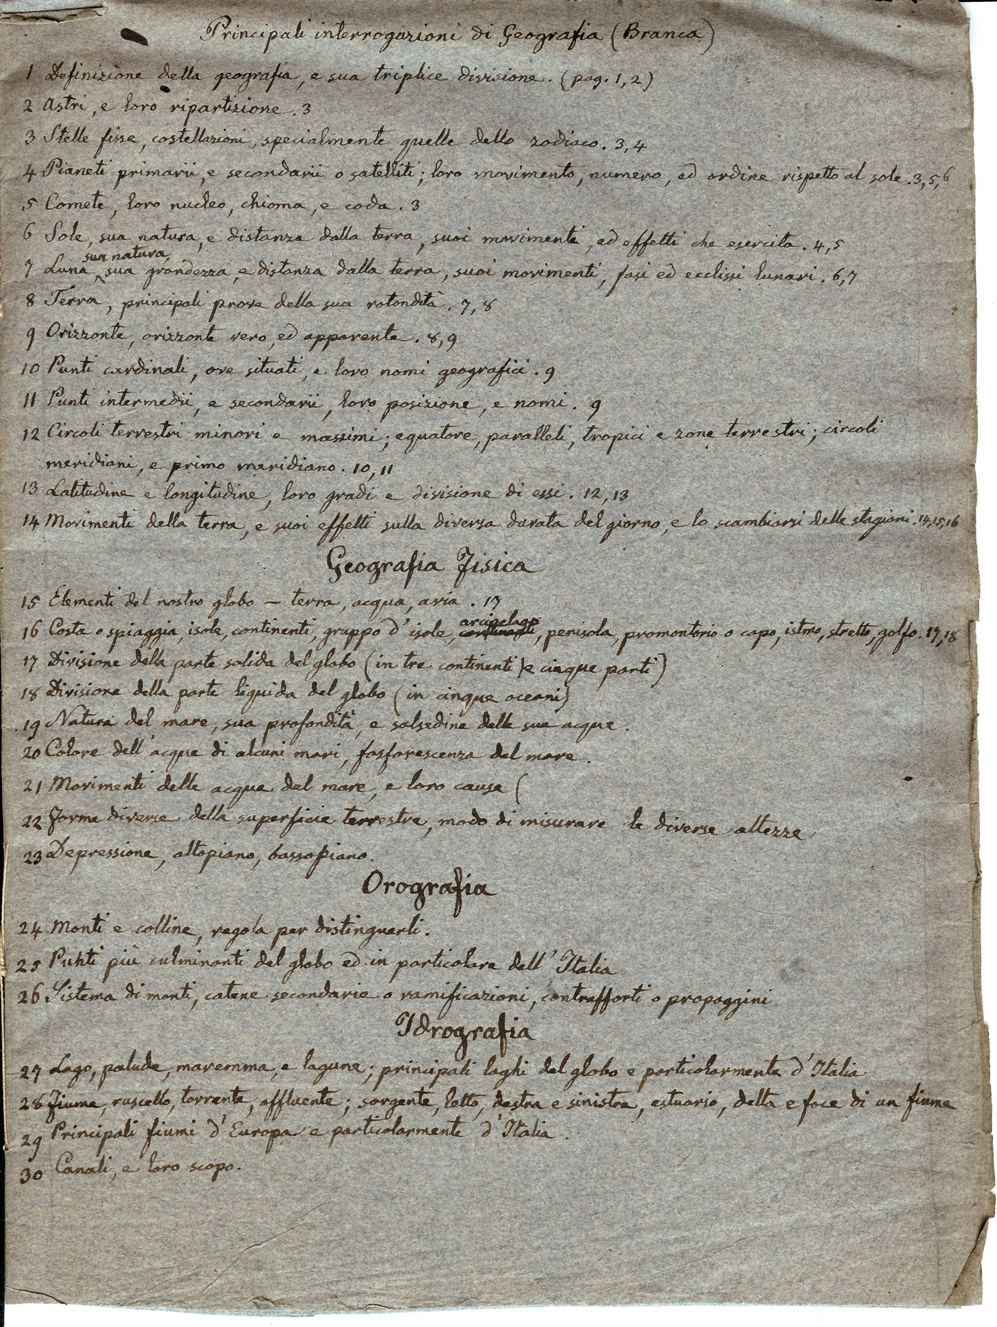 Principali interrogazioni di Geografia (Branca)
1 Definizione della geografia, e sua triplice divisione. (pag. 1, 2)
2 Astri, e loro ripartizione . 3
3 Stelle fisse, costellazioni, specialmente quelle dello zodiaco. 3, 4
4 Pianeti primarii, e secondarii o satelliti; loro movimento, numero, ed ordine rispetto al sole. 3, 5, 6
5 Comete, loro nucleo, chioma, e coda . 3
6 Sole, sua natura, e distanza dalla terra, suoi movimenti, ed effetti che esercita . 4, 5
sua natura,
7 Luna, sua grandezza, e distanza dalla terra, suoi movimenti, fasi ed ecclissi lunari . 6, 7
8 Terra, principali prove della sua rotondità . 7, 8
9 Orizzonte, orizzonte vero, ed apparente . 8, 9
10 Punti cardinali, ove situati, e loro nomi geografici . 9
11 Punti intermedii, e secondarii, loro posizione, e nomi. 9
12 Circoli terrestri minori e massimi; equatore, paralleli, tropici e zone terrestri; circoli
meridiani, e primo meridiano . 10, 11
13 Latitudine e longitudine, loro gradi e divisione di essi . 12, 13
14 Movimenti della terra, e suoi effetti sulla diversa durata del giorno, e lo scambiarsi delle stagioni. 14, 15, 16
Geografia Fisica
15 Elementi del nostro globo – terra, acqua, aria . 17
arcipelago
16 Costa o spiaggia, isole, continenti, gruppo d'isole, continenti, penisola, promontorio o capo, istmo, stretto, golfo. 17, 18
17 Divisione della parte solida del globo (in tre continenti) e cinque parti)
18 Divisione della parte liquida del globo (in cinque oceani)
19 Natura del mare, sua profondità, e salsedine delle sue acque .
20 Colore dell'acque di alcuni mari, fosforescenza del mare .
21 Movimenti delle acque del mare, e loro cause (
22 Forme diverse della superficie terrestre, modo di misurare le diverse altezze
23 Depressione, altopiano, bassopiano.
Orografia
24 Monti e colline, regola per distinguerli .
25 Punti più culminanti del globo ed in particolare dell'Italia
26 Sistema di monti, catene secondarie o ramificazioni, contrafforti o propaggini
Idrografia
27 Lago, palude, maremma, e lagune; principali laghi del globo e particolarmente d'Italia
28 Fiume, ruscello, torrente, affluente; sorgente, letto, destra e sinistra, estuario, delta e foce di un fiume
29 Principali fiumi d'Europa e particolarmente d'Italia .
30 Canali, e loro scopo.